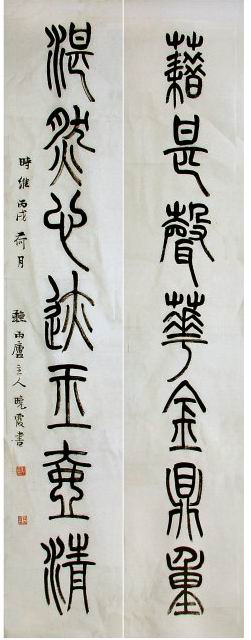 藉甚聲華金鼎重
湛然心迹玉壺清
時維丙戌荷月 聽雨廬主人曉霞書